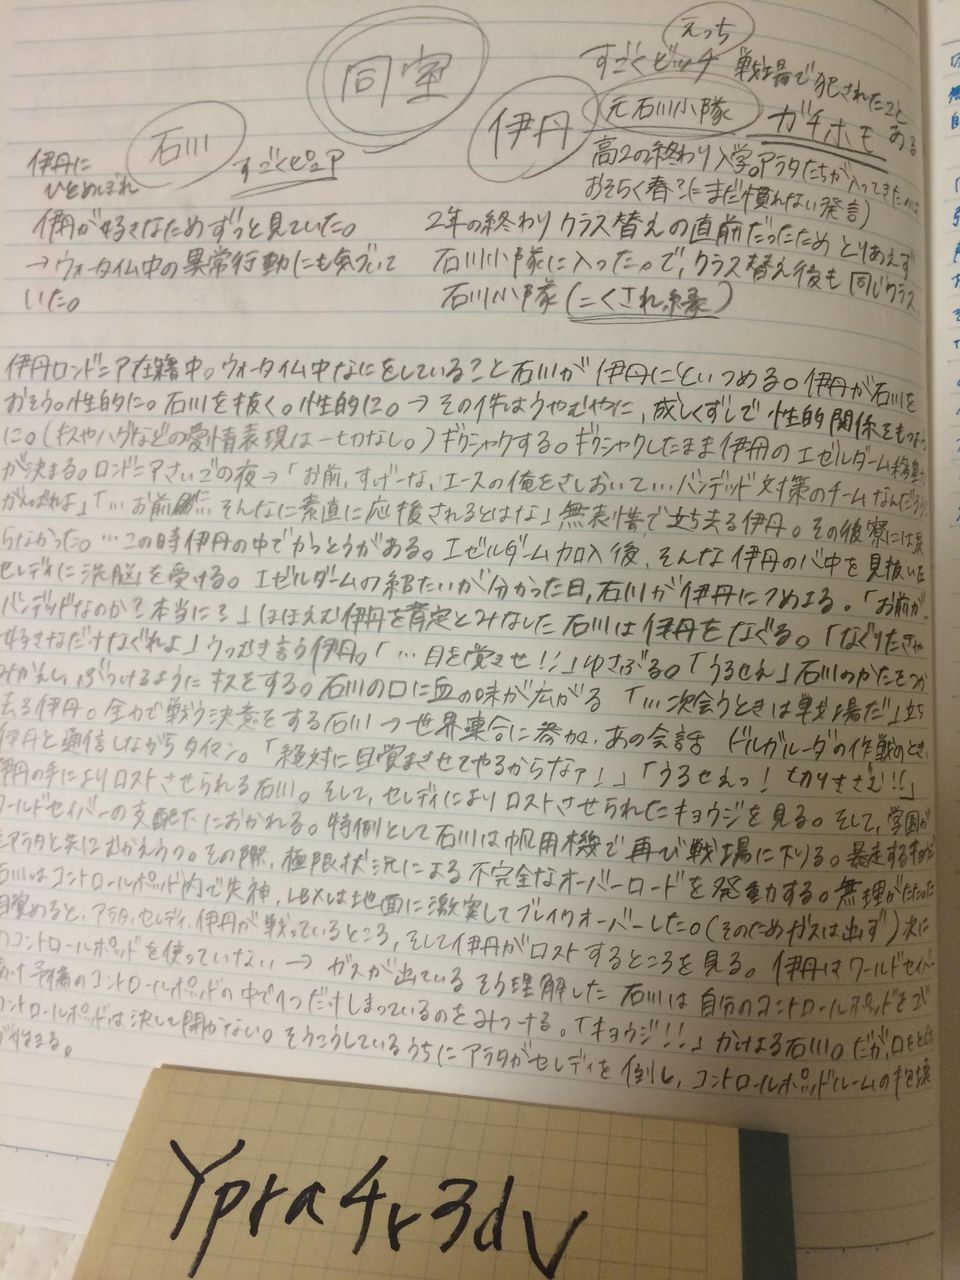 えっち
すごくビッチ 戦場で犯されたことある
同室
伊丹 元石川小隊 ガチホモ
石川 すごくピュア
伊丹に
ひとめぼれ
高2の終わり入学。アラタたちが入ってきたのは
おそらく春?(にまだ慣れない発言)
伊丹が好きなためずっと見ていた。
→ウォータイム中の異常行動にも気づいて
いた。
2年の終わり クラス替えの直前だったため とりあえず
石川小隊に入ったので、クラス替え後も同じクラス、
石川小隊(=くされ縁)
伊丹ロンドニア在籍中。ウォータイム中なにをしていること石川が伊丹にといつめる。伊丹が石川を
おそう。性的に。石川を抜く。性的に。→その件はうやむやに、成しくずしで性的関係をもつ
に。(キスやハグなどの愛情表現は一切なし。)ギクシャクする。ギクシャクしたまま伊丹のエゼルダーム
が決まる。ロンドニアさいごの夜→「お前、すげーな、エースの俺をさしおいて…バンデッド対策のチームなんだろう
がんばれよ」「…お前に…そんなに素直に応援されるとはな」無表情で立ち去る伊丹。その後寮には
らなかった。…この時伊丹の中でかっとうがある。エゼルダーム加入後、そんな伊丹の心中を見抜いた
セレディに「洗脳」を受ける。エゼルダームの紹たいが分かった日、石川が伊丹につめよる。「お前が…
バンデッドなのか?本当に?」ほほえむ伊丹を肯定とみなした石川は伊丹をなぐる。「なぐりたきゃ
好きなだけなぐれよ」うつむき言う伊丹。「…目を覚ませ!!」ゆさぶる。「うるせえ」石川のかたをつか
みかえし、ぶつけるようにキスをする。石川の口に血の味が広がる 「…次会うときは戦場だ」立ち
去る伊丹。全力で戦う決意をする石川→世界連合に参加、あの会話 ドルガルーダの作戦のとき、
伊丹と通信しながらタイマン。「絶対に目覚まさせてやるからなァ!」「うるせえっ!切りきざむ!!」
伊丹の手によりロストさせられる石川。そして、セレディによりロストさせられたキョウジを見る。そして、学園が
ワールドセイバーの支配下におかれる。特例として石川は汎用機で再び戦場に下りる。暴走する
をアラタと共にむかえうつ。その際、極限状況による不完全なオーバーロードを発動する。無理がたたった
石川はコントロールポッド内で失神、LBXは地面に激突してブレイクオーバーした。(そのためガスは出ず)次に
目覚めると、アラタ、セレディ、伊丹が戦っているところ、そして伊丹がロストするところを見る。伊丹はワールドセイバー
のコントロールポッドを使っていない→ガスが出ている そう理解した石川は自分のコントロールポッドを
予備のコントロールポッドの中で1つだけしまっているのをみつける。「キョウジ!!」かけよる石川。だが、
コントロールポッドは決して開かない。そうこうしているうちにアラタがセレディを倒し、コントロールポッドルームの
まる。
Ypra4r3dv